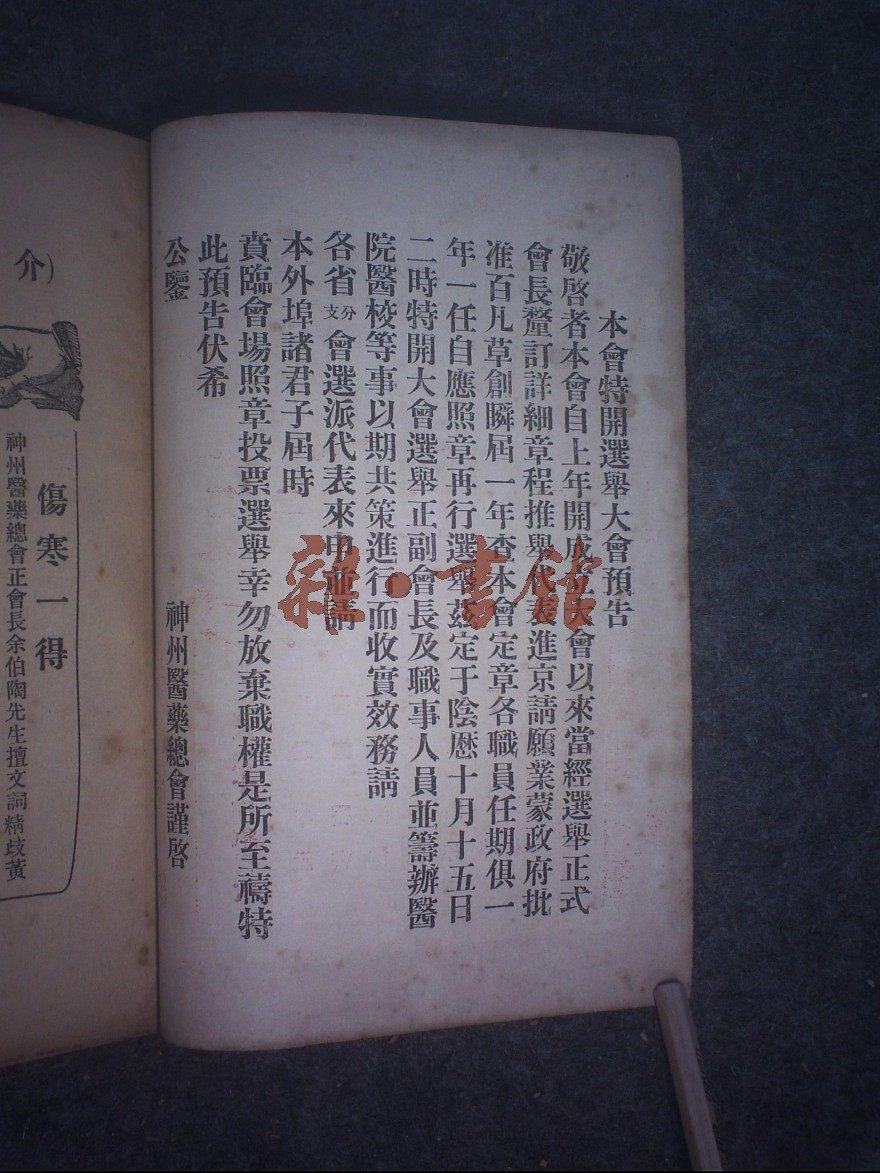 本會特開選舉大會預告
敬啓者本會自上年開成立大會以來當經選舉正式
會長釐訂詳細章程推舉代表進京請願業蒙政府批
准百凡草創瞬屆一年查本會定章各職員任期俱一
年一任自應照章再行選舉茲定于陰曆十月十五日
二時特開大會選舉正副會長及職事人員並籌辦醫
院醫校等事以期共策進行而收實效務請
各省分支會選派代表來申並請
本外埠諸君子屆時
賁臨會場照章投票選舉幸勿放棄職權是所至禱特
此預告伏希
公鑒
神州醫藥總會謹啓
介)
傷寒一得
神州醫藥總會正會長余伯陶先生擅文詞精歧黃
雜·書館